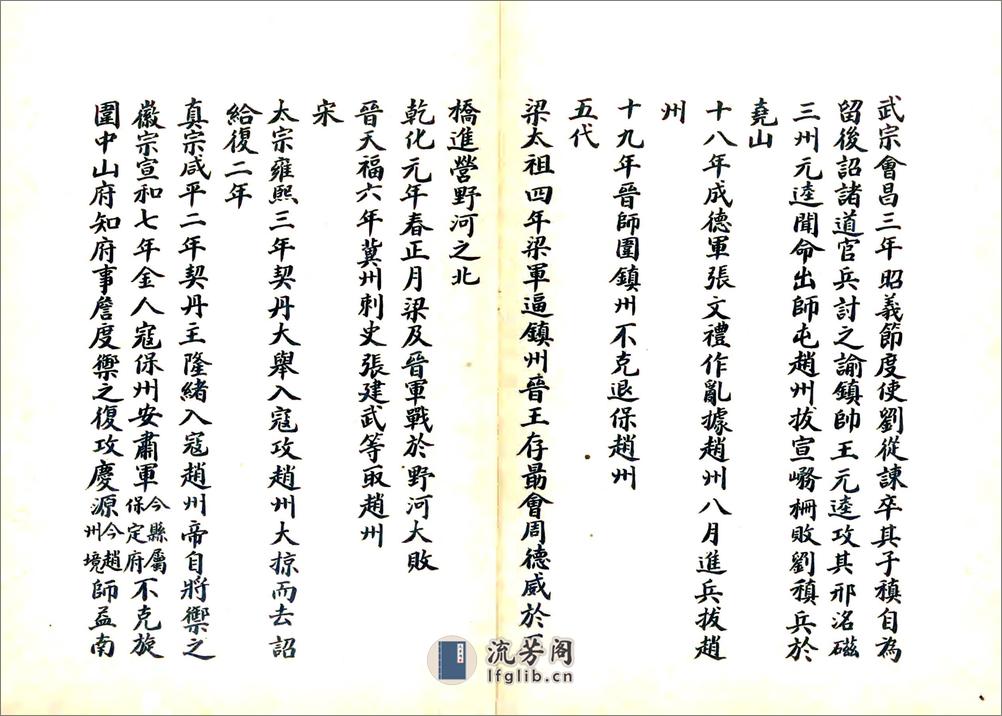 武宗會昌三年昭義節度使劉從諫卒其子稹自為
留後詔諸道官兵討之諭鎮帥王元逵攻其邢洺磁
三州元逵聞命出師屯趙州拔宣嵍柵敗劉稹兵於
堯山
十八年成德軍張文禮作亂據趙州八月進兵拔趙
州
十九年晉師圍鎮州不克退保趙州
五代
梁太祖四年梁軍逼鎮州晉王存勗會周德威於
橋進營野河之北
乾化元年春正月梁及晉軍戰於野河大敗
晉天福六年冀州刺史張建武等取趙州
宋
太宗雍熙三年契丹大舉入寇攻趙州大掠而去詔
給復二年
真宗咸平二年契丹主隆緒入寇趙州帝自將禦之
徽宗宣和七年金人寇保州安肅軍今縣屬保定府不克旋
圍中山府知府事詹度禦之復攻慶源今趙州境師益南
流芳阁
lfglib.cn